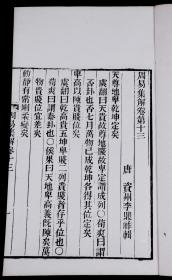 周易集解卷第十三
唐 資州李鼎祚輯
天尊地卑乾坤定矣
虞翻曰天貴故尊地賤故卑定謂成列○荀爽曰謂
否卦也否七月萬物已成乾坤各得其位定矣
卑高以陳貴賤位矣
虞翻曰乾高貴五坤卑賤二列貴賤者存乎位也○
荀爽曰謂泰卦也○侯果曰天地卑高義既陳矣萬
物貴賤位宜差矣
動靜有常剛柔斷矣
周易集解卷十三